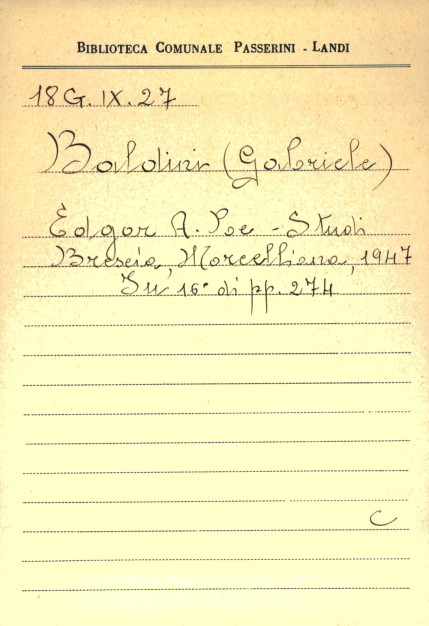 BIBLIOTECA COMUNALE PASSERINI - LANDI
18 G. IX. 27
Baldini (Gabriele)
Edgar A. Poe - Studi
Brescia, Morcelliana, 1947
In 16° di pp. 274
C